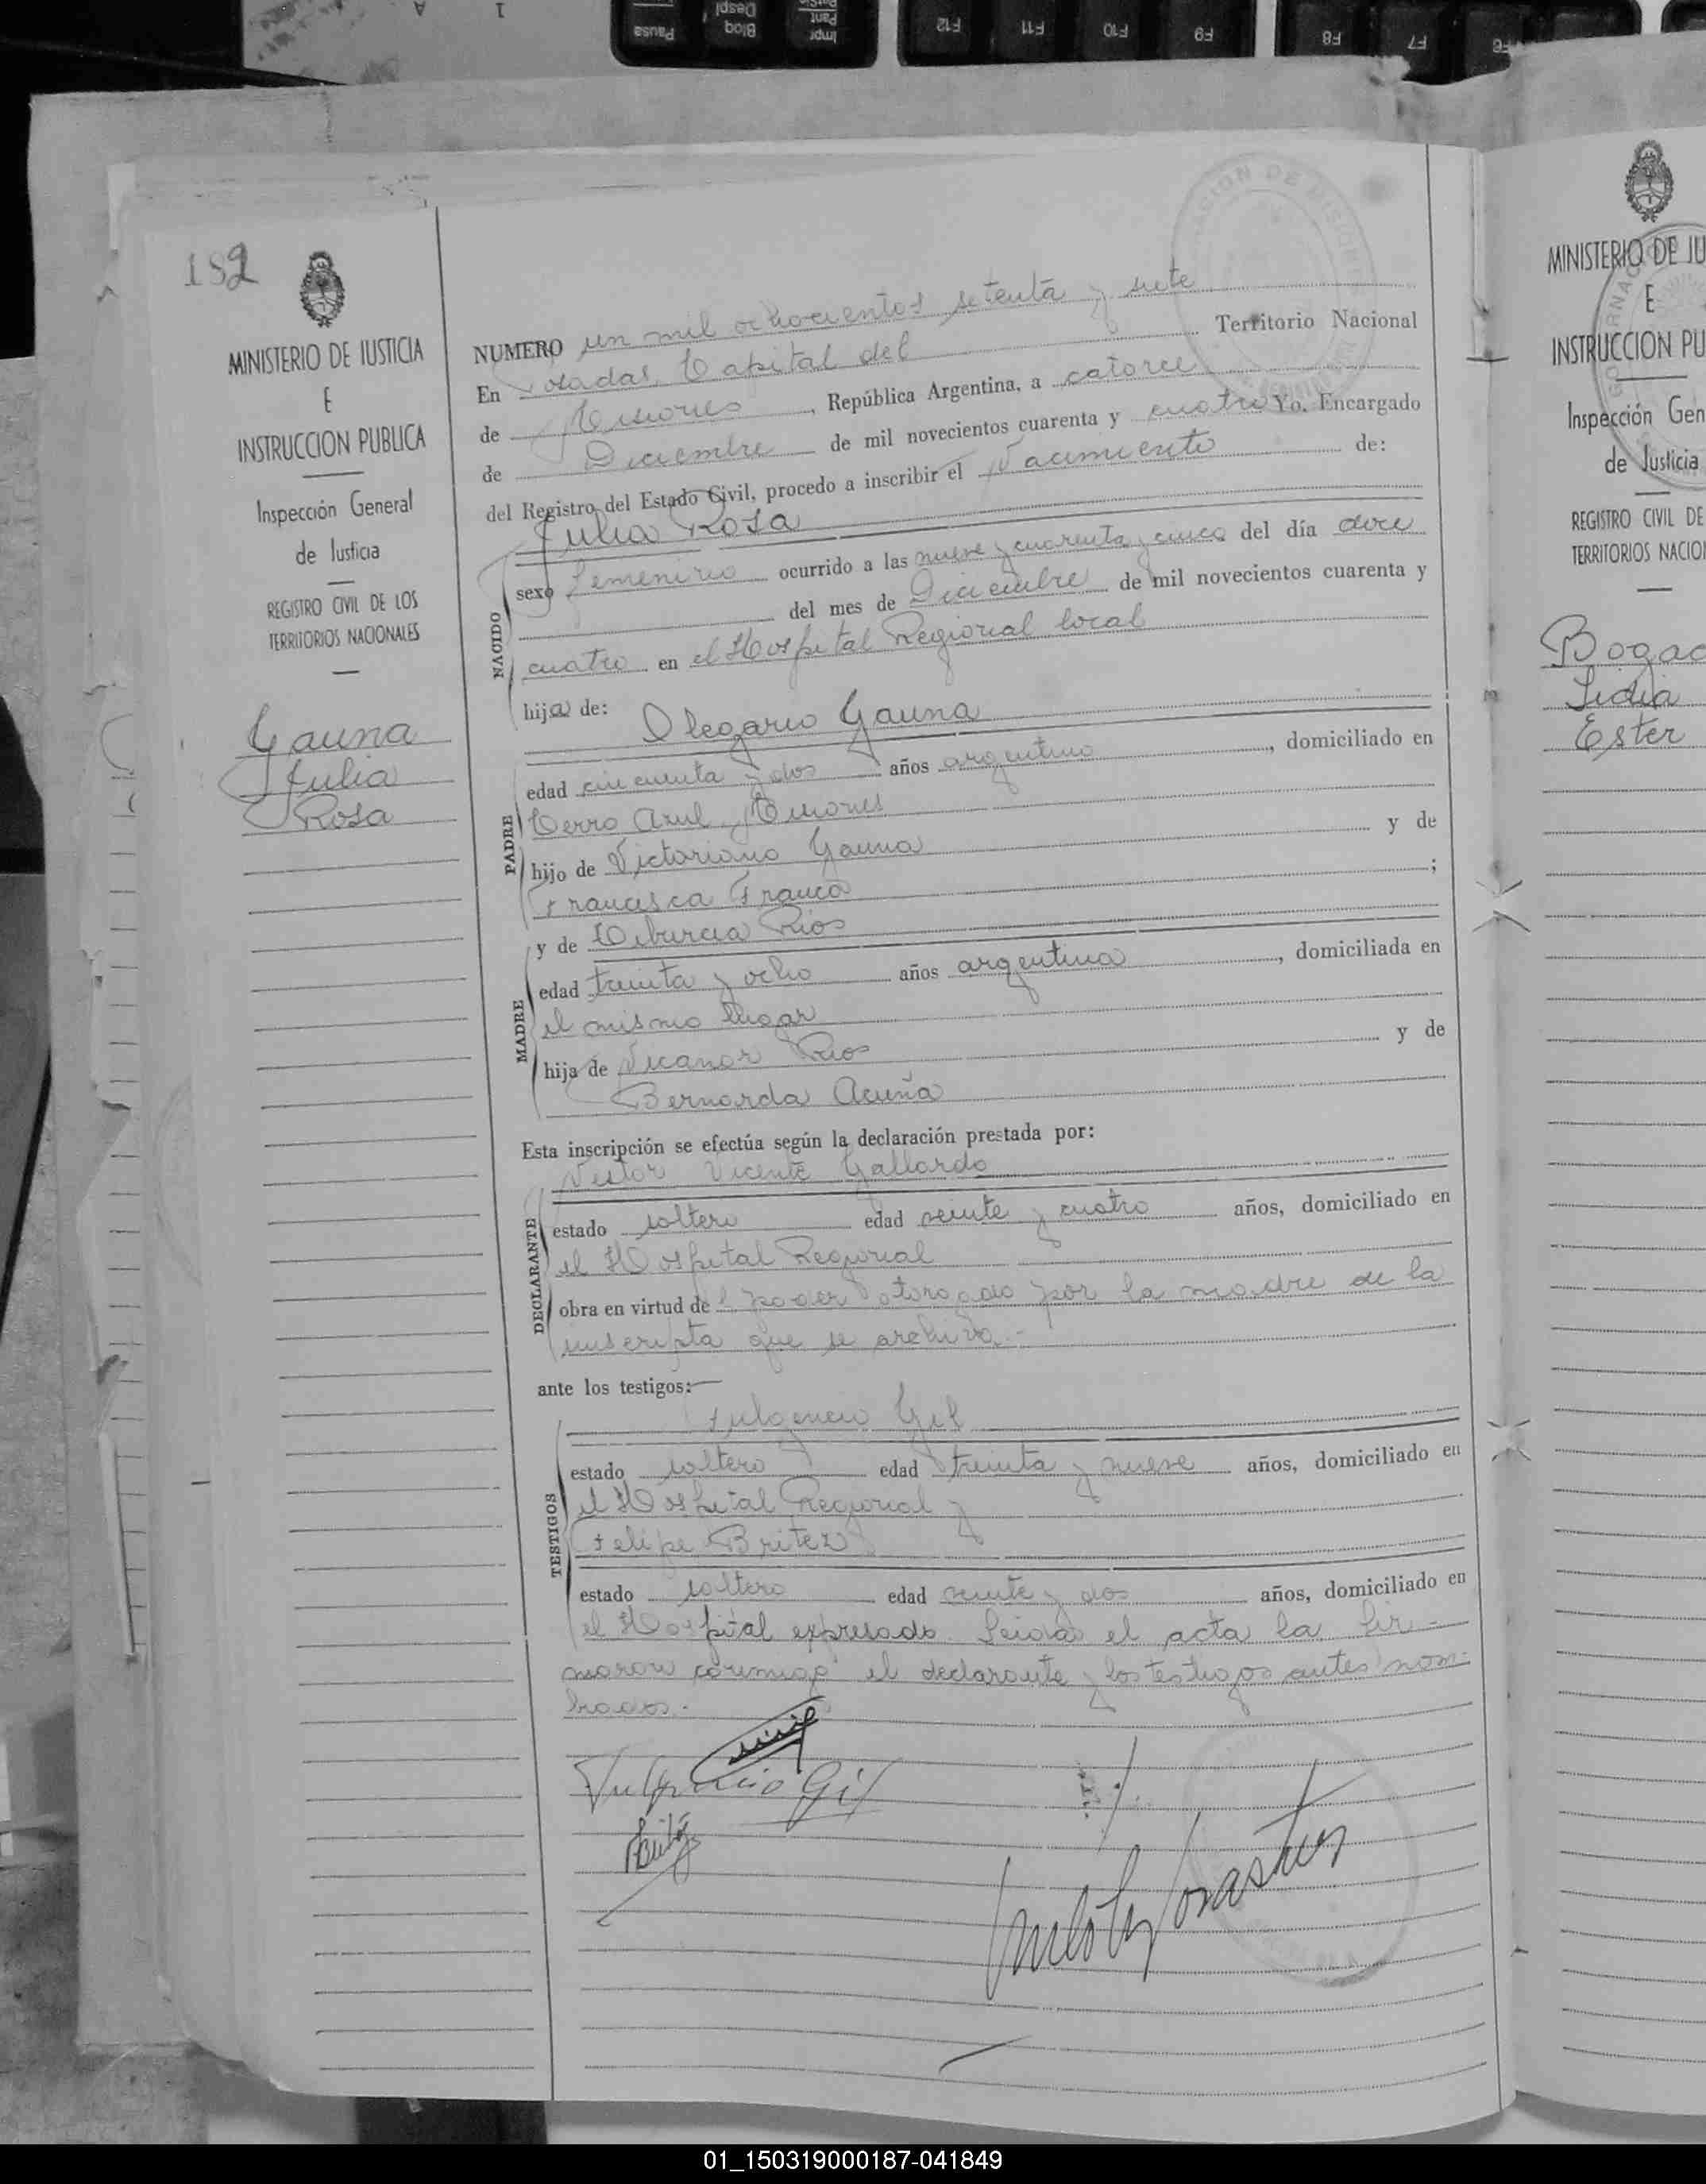 Pausa
Bloq
Despl
Impr
Pant
F12
F11
F10
F9
F8
F7
182
MINISTERIO DE JUSTICIA
E
INSTRUCCION PUBLICA
Inspección General
de Justicia
REGISTRO CIVIL DE LOS
TERRITORIOS NACIONALES
Gauna
Julia
Rosa
NUMERO un mil ochocientos setenta y siete
En Posadas, Capital del Territorio Nacional
de Misiones, República Argentina, a catorce
de Diciembre de mil novecientos cuarenta y cuatro Yo. Encargado
del Registro del Estado Civil, procedo a inscribir el Nacimiento de:
Julia Rosa
NACIDO
sexo femenino ocurrido a las nueve y cuarenta y cinco del día doce
del mes de Diciembre de mil novecientos cuarenta y
cuatro en el Hospital Regional local
hija de:
Olegario Gauna
PADRE
edad cincuenta y dos años argentino, domiciliado en
Cerro Azul, Misiones
hijo de Victoriano Gauna y de
Francisca Franco;
y de Tiburcia Rios
MADRE
edad treinta y ocho años argentina, domiciliada en
el mismo lugar
hija de Nicanor Rios y de
Bernarda Acuña
Esta inscripción se efectúa según la declaración prestada por:
Nestor Vicente Gallardo
DECLARANTE
estado soltero edad veinte y cuatro años, domiciliado en
el Hospital Regional
obra en virtud del poder otorgado por la madre de la
inscripta que se archiva.-
ante los testigos:
Fulgencio Gil
TESTIGOS
estado soltero edad treinta y nueve años, domiciliado en
el Hospital Regional y
Felipe Britez
estado soltero edad veinte y dos años, domiciliado en
el Hospital expresado. Leida el acta la fir-
maron conmigo el declarante y los testigos antes nom-
brados.-
Fulgencio Gil
MINISTERIO DE JU
E
INSTRUCCION PU
Inspección Gen
de Justicia
REGISTRO CIVIL DE
TERRITORIOS NACION
Bogac
Lidia
Ester
01_150319000187-041849